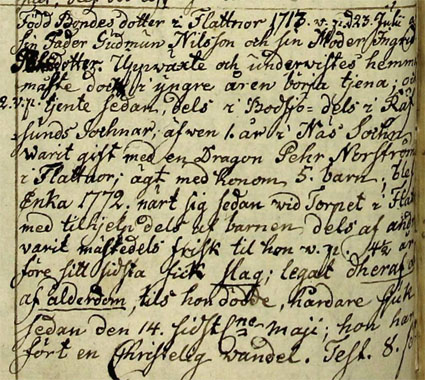 Född Bondes dotter i Flattnor 1713. v. p. d 23. Julii
sin Fader Gudmun Nilsson och sin Moder Ingrid
dotter. Upwäxte och underwistes hemma
måste dock i yngre åren börja tjena; och
2. v. p. tjente sedan, dels i Bodsjö= dels i Räf
sunds Sochnar, äfwen 1. år i Näs Sochn
Warit gift med en Dragon Pehr Norström
i Flattnor; ägt med honom 5. barn, blef
Enka 1772. närt sig sedan wid Torpet i Flat
med tilhjelp dels af barnen, dels af andr
varit mästedels frisk til hon v. p. 4½ år
före sitt sidsta fick slag; legat dheraf o
af ålderdom, tils hon dödde, hårdare sjuk
sedan den 14. sidstl:ne maji; hon har
fört en Christelig wandel. Test. 8.